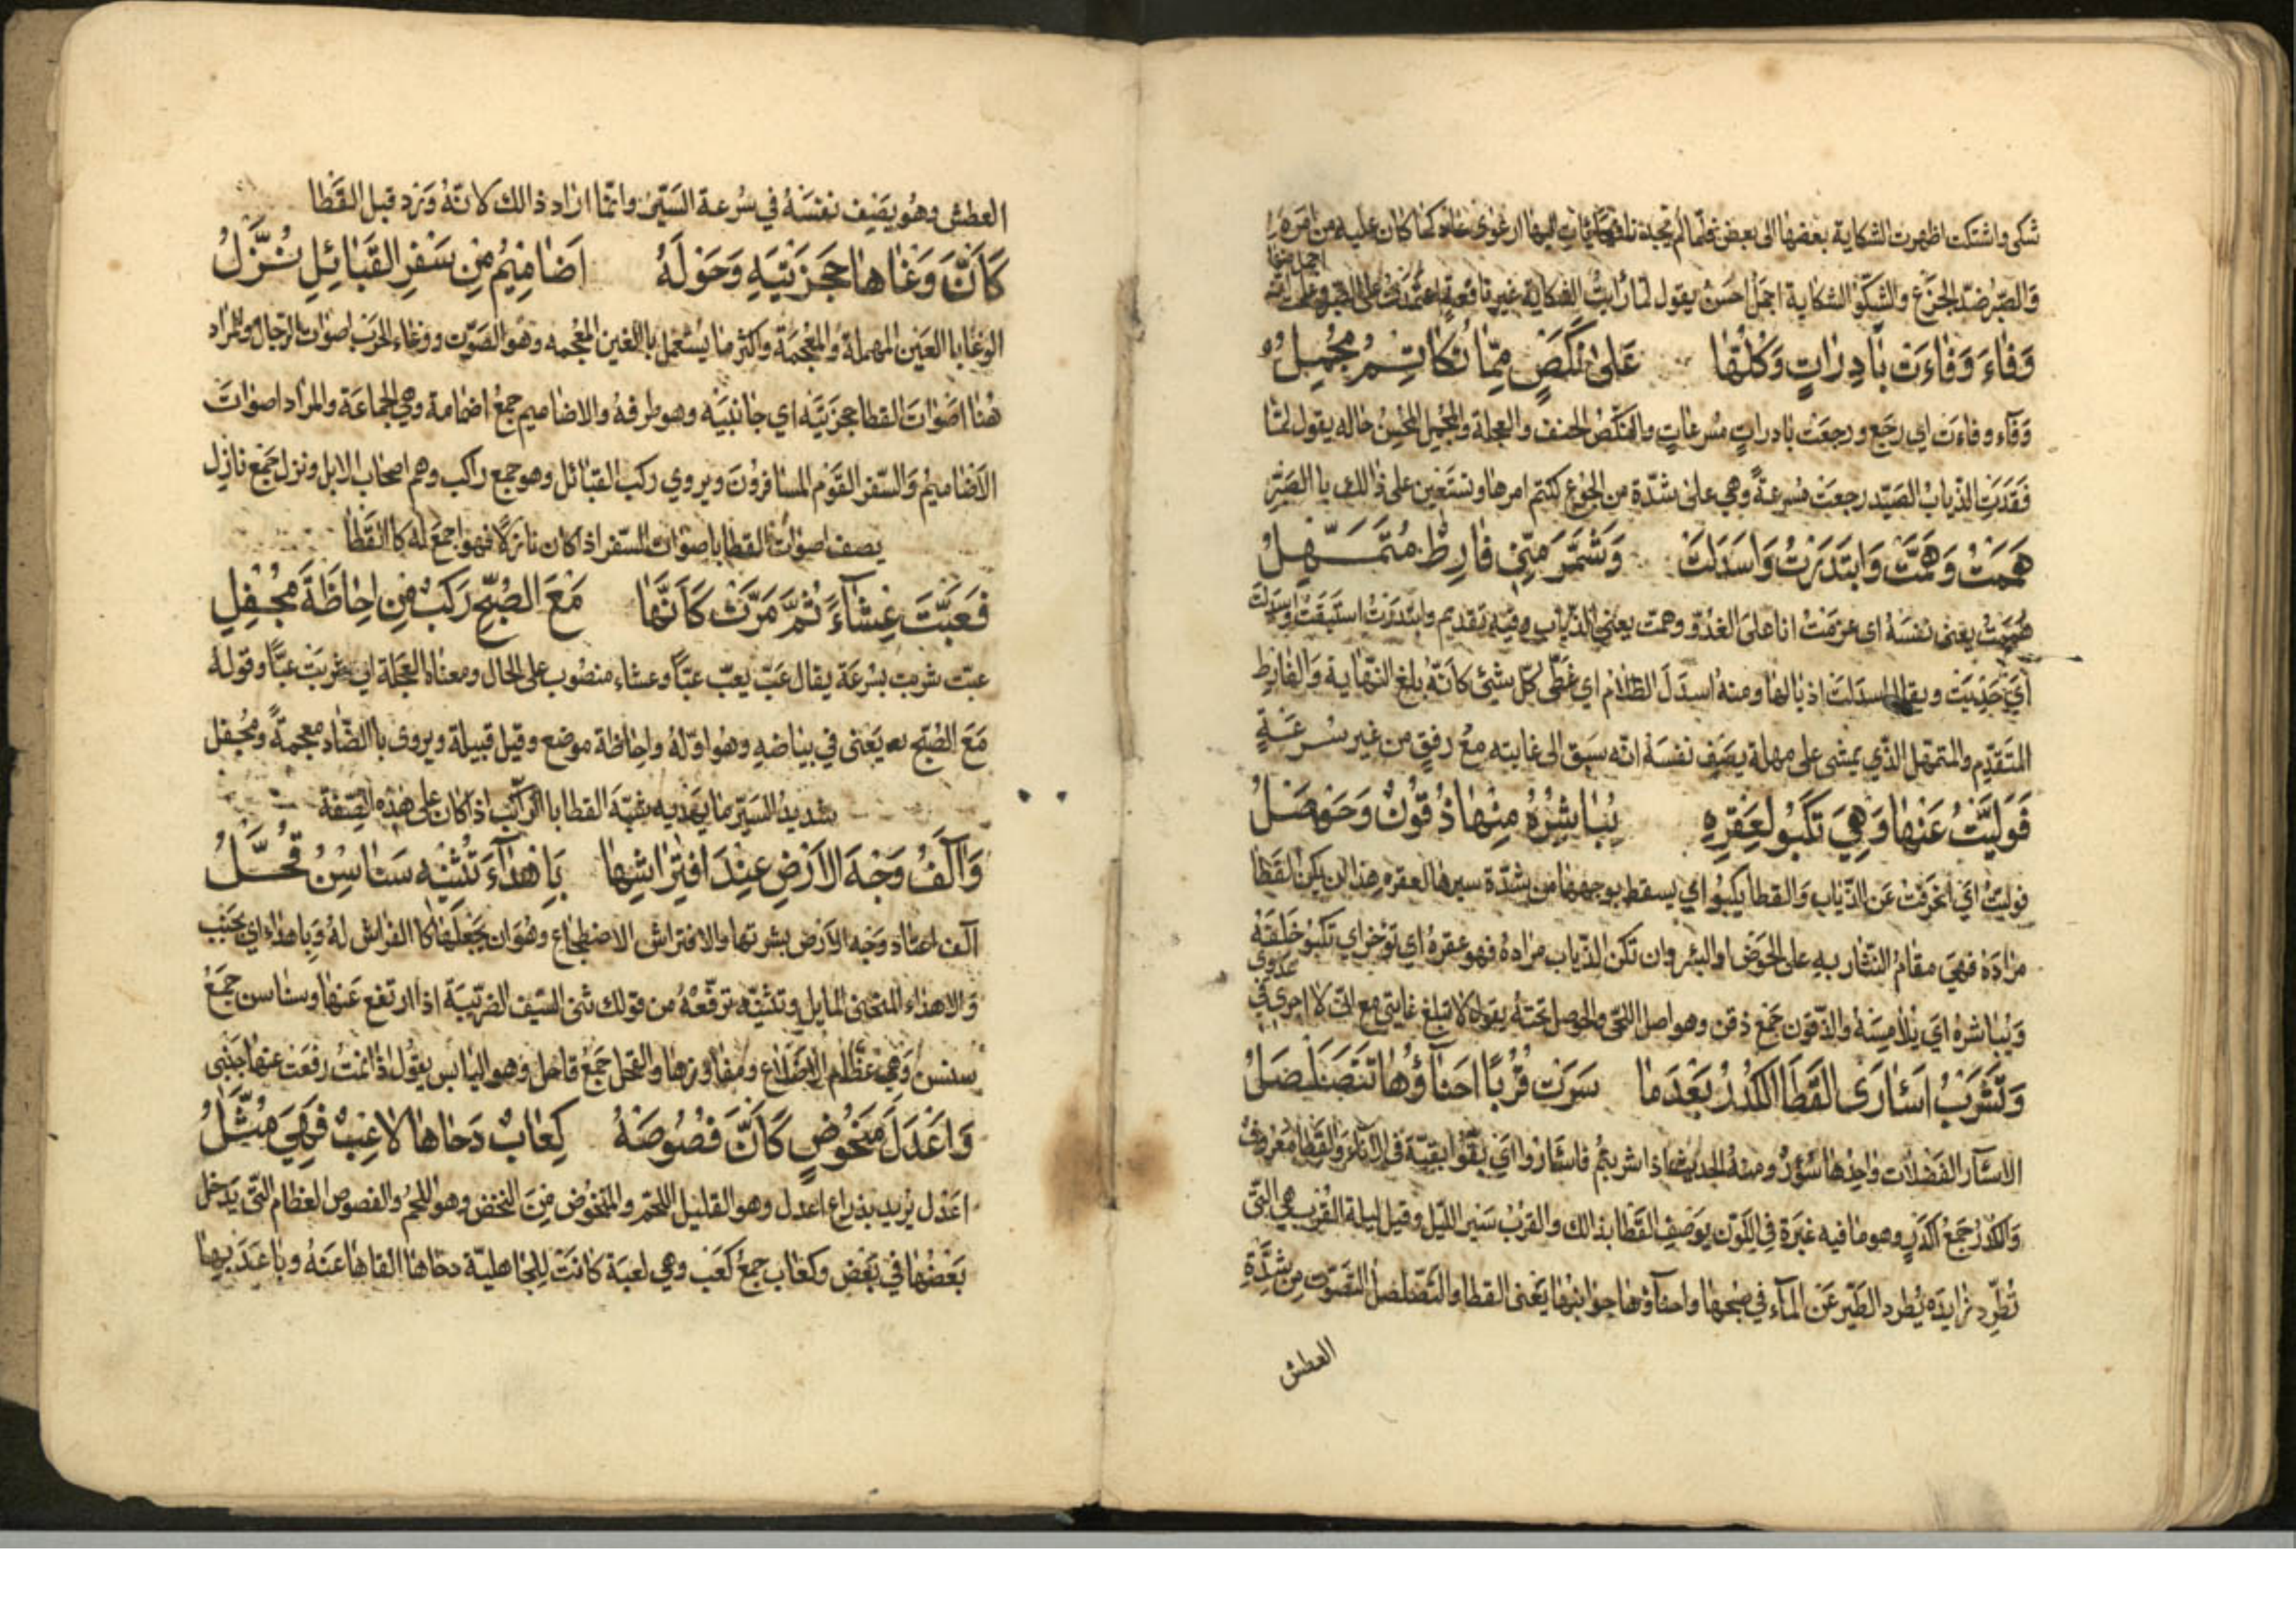 شكى واشتكت اظهرت الشكاية بعضها الى بعض فلما لم تجده نافعا ارعوى عاد كما كان عليه من امره
اجمل صفوا
والصبر ضد الجزع والشكو الشكاية اجمل احسن يقول لما رايت الشكاية غير نافعة اعتمدت على الصبر
وَفَاءَ وَفَاءَتْ بَادِرَاتٍ وَكُلُّهَا عَلَىٰ نَكَصٍ مِمَّا تُكَاتِمُ مُجْمِلُ
وفاء وفاءت اي رجع ورجعت بادرات مسرعات والنكص العنف والعجلة والمجمل المحسن حاله يقول لما
فقدت الذياب الصيد رجعت مسرعة وهي على شدة من الجوع تكتم امرها وتستعين على ذالك با الصبر
هَمَمْتُ وَهَمَّتْ وَابْتَدَرْتُ وَاسْدَلَتْ وَشَمَّرَ مِنِّي فَارِطٌ مُتَمَهِّلُ
هممت يعنى نفسه اى عزمت انا على الغدو وهمت يعني الذياب وفيه تقديم وابتدرت استبقت واسدلت
اي جذبت ويقال اسدلت اذيالها ومنه اسدل الظلام اي غطى كل شئ كانه بلغ النهاية والفارط
المتقدم والمتمهل الذي يمشى على مهلة يصف نفسه انه سبق الى غايته مع رفق من غير سرعة
فَوَلَّيْتُ عَنْهَا وَهِيَ تَكْبُو لِعَقْرِهِ يُبَاشِرُهُ مِنْهَا ذُقُونٌ وَحَوْصَلُ
فوليت اي انحرفت عن الذياب والقطا يكبو اي يسقط بوجهها من شدة سيرها العقره هذا ان يكن القطا
مراده فهي مقام الشاربه على الحوض او البئر وان تكن الذياب مراده فهو عقره اي توخر اي تكبو خلفه
عدوى
ويباشره اي يلامسه والذقون جمع ذقن وهو اصل اللحى والحوصل تحته يقول لا تبلغ غايتي مع اني لا اجرى في
وَتَشْرَبُ اسَئارِى القَطَا الكُدْرُ بَعْدَمَا سَرَتْ قُرْبًا احْنَاؤُهَا تَتَصَلْصَلُ
الاسئار الفضلات واحدها سؤر ومنه الحديث اذا شربتم فاسئاروا اي بقوا بقية في الاناء والقطا معروف
والكدر جمع اكدر وهو ما فيه غبرة في اللون يوصف القطا بذالك والقرب سير الليل وقيل ليلة القرب هي التى
تطرد يطرد الطير عن الماء في صبحها واحناؤها جوانبها يعنى القطا والتصلصل التصوت من شدة
العطش
العطش وهو يصف نفسه في سرعة السير وانما اراد ذالك لانه ورد قبل القطا
كَأَنَّ وَغَاهَا حَجْزَتَيْهِ وَحَوْلَهُ اَضَامِيمُ مِنْ سَفْرِ القَبَائِلِ نُزَّلُ
الوغا با العين المهملة والمعجمة واكثر ما يستعمل با الغين المعجمه وهو الصوت ووغاء الحرب اصوات الرجال والمراد
هنا اصوات القطا حجزتيه اي جانبيه وهو طرفه والاضاميم جمع اضمامة وهي الجماعة والمراد اصوات
الاضاميم والسفر القوم المسافرون ويروي ركب القبائل وهو جمع راكب وهم اصحاب الابل ونزل جمع نازل
يصف اصوات القطا با صوات السفر اذ كان نازلا فهو اجمع له كا القطا
فَعَبَّتْ غِشَاءً ثُمَّ مَرَّتْ كَأَنَّهَا مَعَ الصُّبْحِ رَكْبٌ مِنْ احَاظَةَ مُجْفِلِ
عبت شربت بسرعة يقال عب يعب عبا وغشاء منصوب على الحال ومعناه العجلة اي شربت عبا وقوله
مع الصبح يعنى في بياضه وهو اوله واحاظة موضع وقيل قبيلة ويروى با الضاد معجمة ومجفل
شديد السير بقية القطا با الركب اذا كان على هذه الصفة
وَاآلَفُ وَجْهَ الاَرْضِ عِنْدَ افْتِرَاشِهَا بِاَهْدَاءَ تُثْنِيهِ سَنَاسِنُ قُحَّلُ
آلف اعتاد وجه الارض بشرتها والافتراش الاضطجاع وهو ان يجعلها كا الفراش له وباهداء اي بجنب
والاهداء المنحنى المايل وتثنيه ترفعه من قولك ثنى السيف الضريبة اذا ارتفع عنها وسناسن جمع
سنسن وهي عظام الاضلاع ومفاوزها والقحل جمع قاحل وهو اليابس يقول اذا نمت رفعت عنها جنبى
وَاعْدَلَ مَنْحُوضٍ كَأَنَّ فُصُوصَهُ كِعَابٌ دَحَاهَا لاعِبٌ فَهِيَ مُثَّلُ
اعدل يريد بذراع اعدل وهو القليل اللحم والمنحوض من النحض وهو اللحم والفصوص العظام التى يدخل
بعضها في بعض وكعاب جمع كعب وهي لعبة كانت للجاهلية دحاها القاها عنه وباعد بها